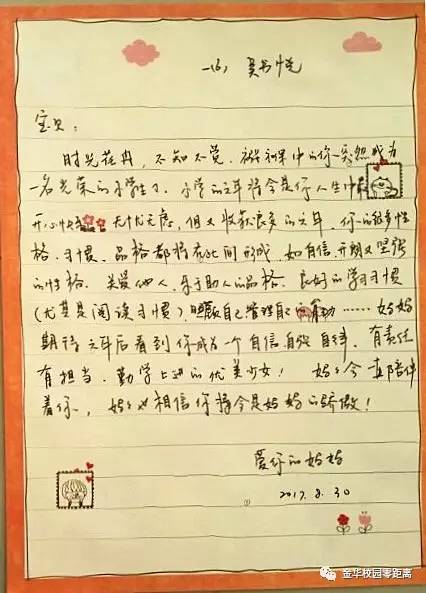 一(6) 吴书悦
宝贝:
时光荏冉,不知不觉,襁褓中的你突然成为
一名光荣的小学生了。小学的六年将会是你人生中最
开心快乐 无忧无虑,但又收获良多的六年,你的很多性
格、习惯、品格都将在此间形成,如自信、开朗又坚强
的性格。关爱他人,乐于助人的品格。良好的学习习惯
(尤其是阅读习惯)照顾自己管理自己的 …… 妈妈
期待六年后看到你成为一个自信、自强、自律,有责任
有担当,勤学上进的优美少女! 妈妈会一直陪伴
着你,妈妈也相信你将会是妈妈的骄傲!
爱你的妈妈
2017.8.30
金华校园零距离